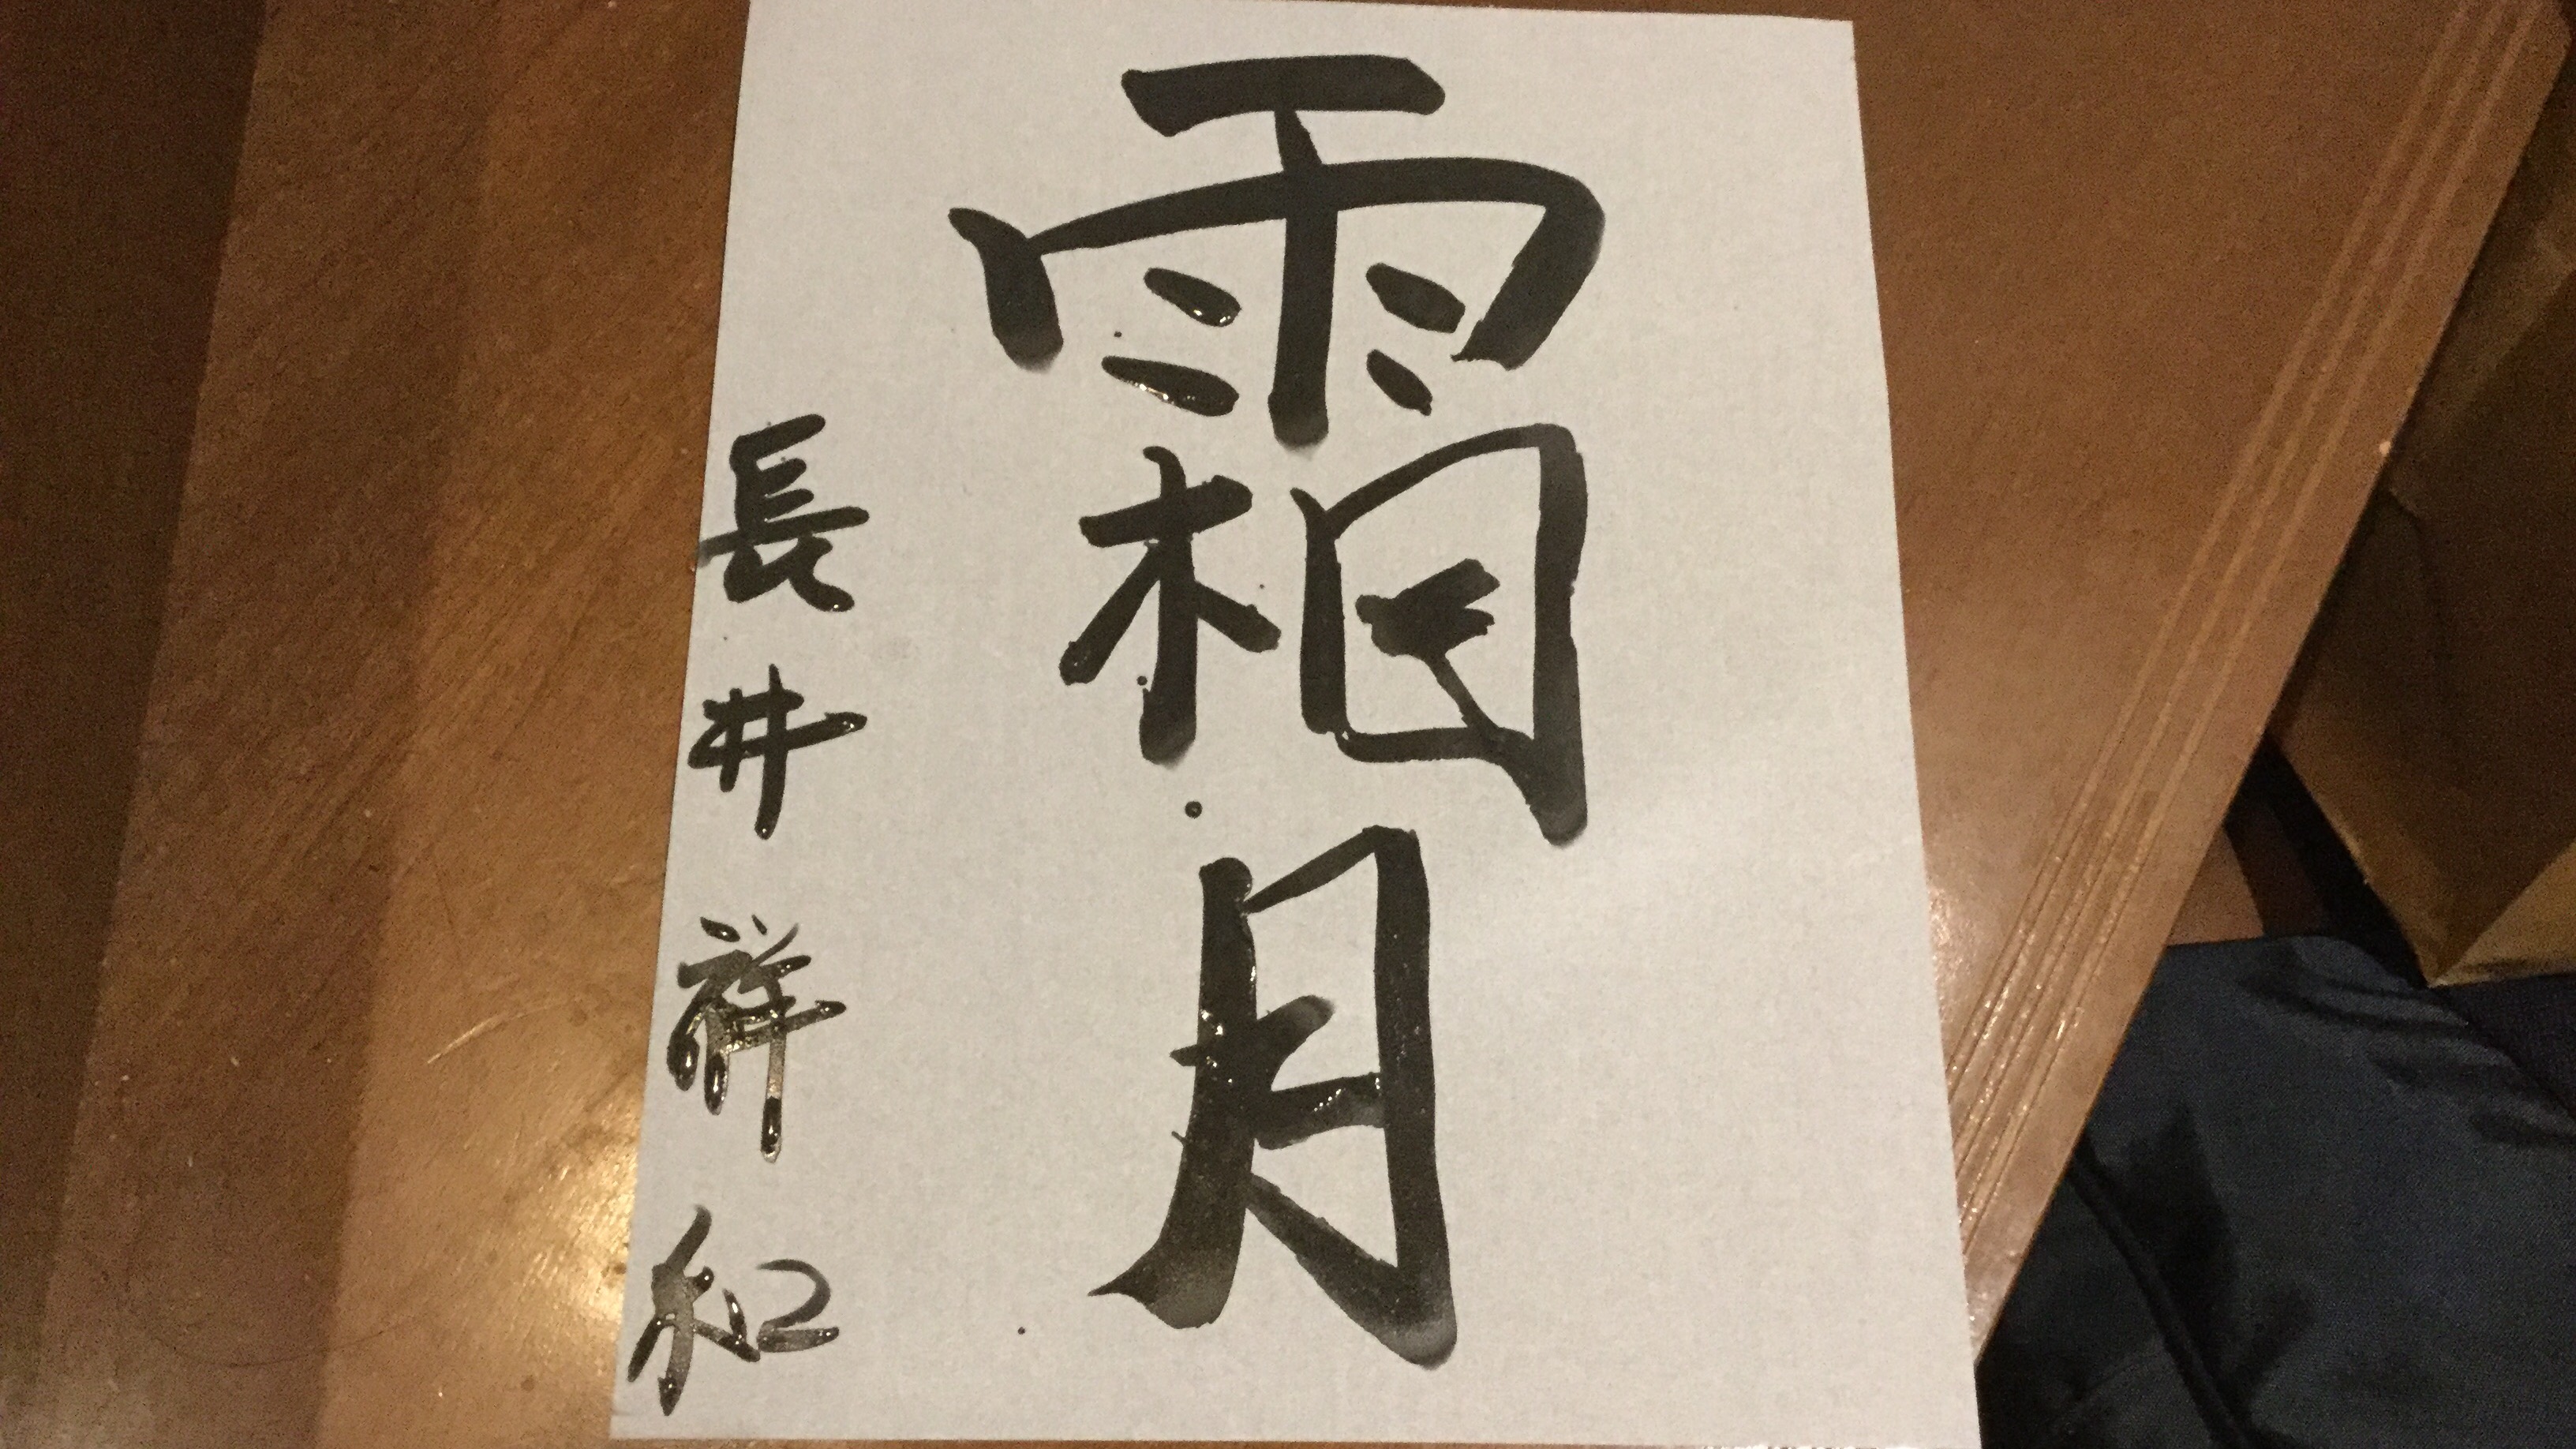 霜月
長井祥和